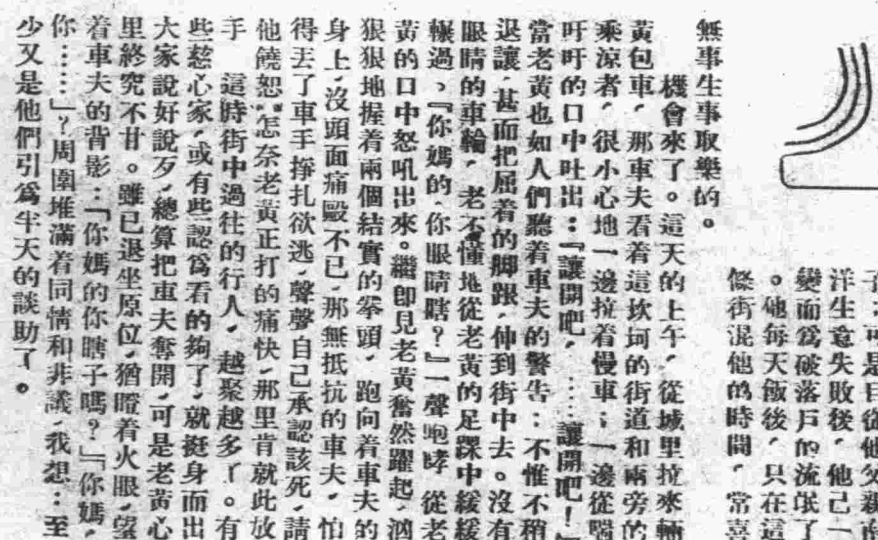 子：可是自從他父親的
洋生意失敗後，他已一
變而爲破落戶的流氓了
。他每天飯後，只在這
條街混他的時間，常喜
無事生事取樂的。
機會來了。這天的上午，從城里拉來輛
黃包車，那車夫看着這坎坷的街道和兩旁的
乘涼者，很小心地一邊拉着慢車；一邊從喘
吁吁的口中吐出：『讓開吧，……讓開吧！』
當老黃也如人們聽着車夫的警告：不惟不稍
退讓，甚而把屈着的脚跟，伸到街中去。沒有
眼睛的車輪，老不懂地從老黃的足踝中緩緩
輾過，『你媽的，你眼睛瞎？』一聲咆哮，從老
黃的口中怒吼出來。繼卽見老黃奮然躍起，汹
狠狠地握着兩個結實的拳頭，跑向着車夫的
身上，沒頭面痛毆不已，那無抵抗的車夫，怕
得丟了車手掙扎欲逃，聲聲自己承認該死，請
他饒恕。怎奈老黃正打的痛快，那里肯就此放
手　這時街中過往的行人，越聚越多了。有
些慈心家，或有些認爲看的夠了，就挺身而出
大家說好說歹，總算把車夫奪開，可是老黃心
里終究不甘。雖已退坐原位，猶瞪着火眼，望
着車夫的背影：『你媽的你瞎子嗎？』『你媽，
你……』？周圍堆滿着同情和非議，我想：至
少又是他們引爲半天的談助了。